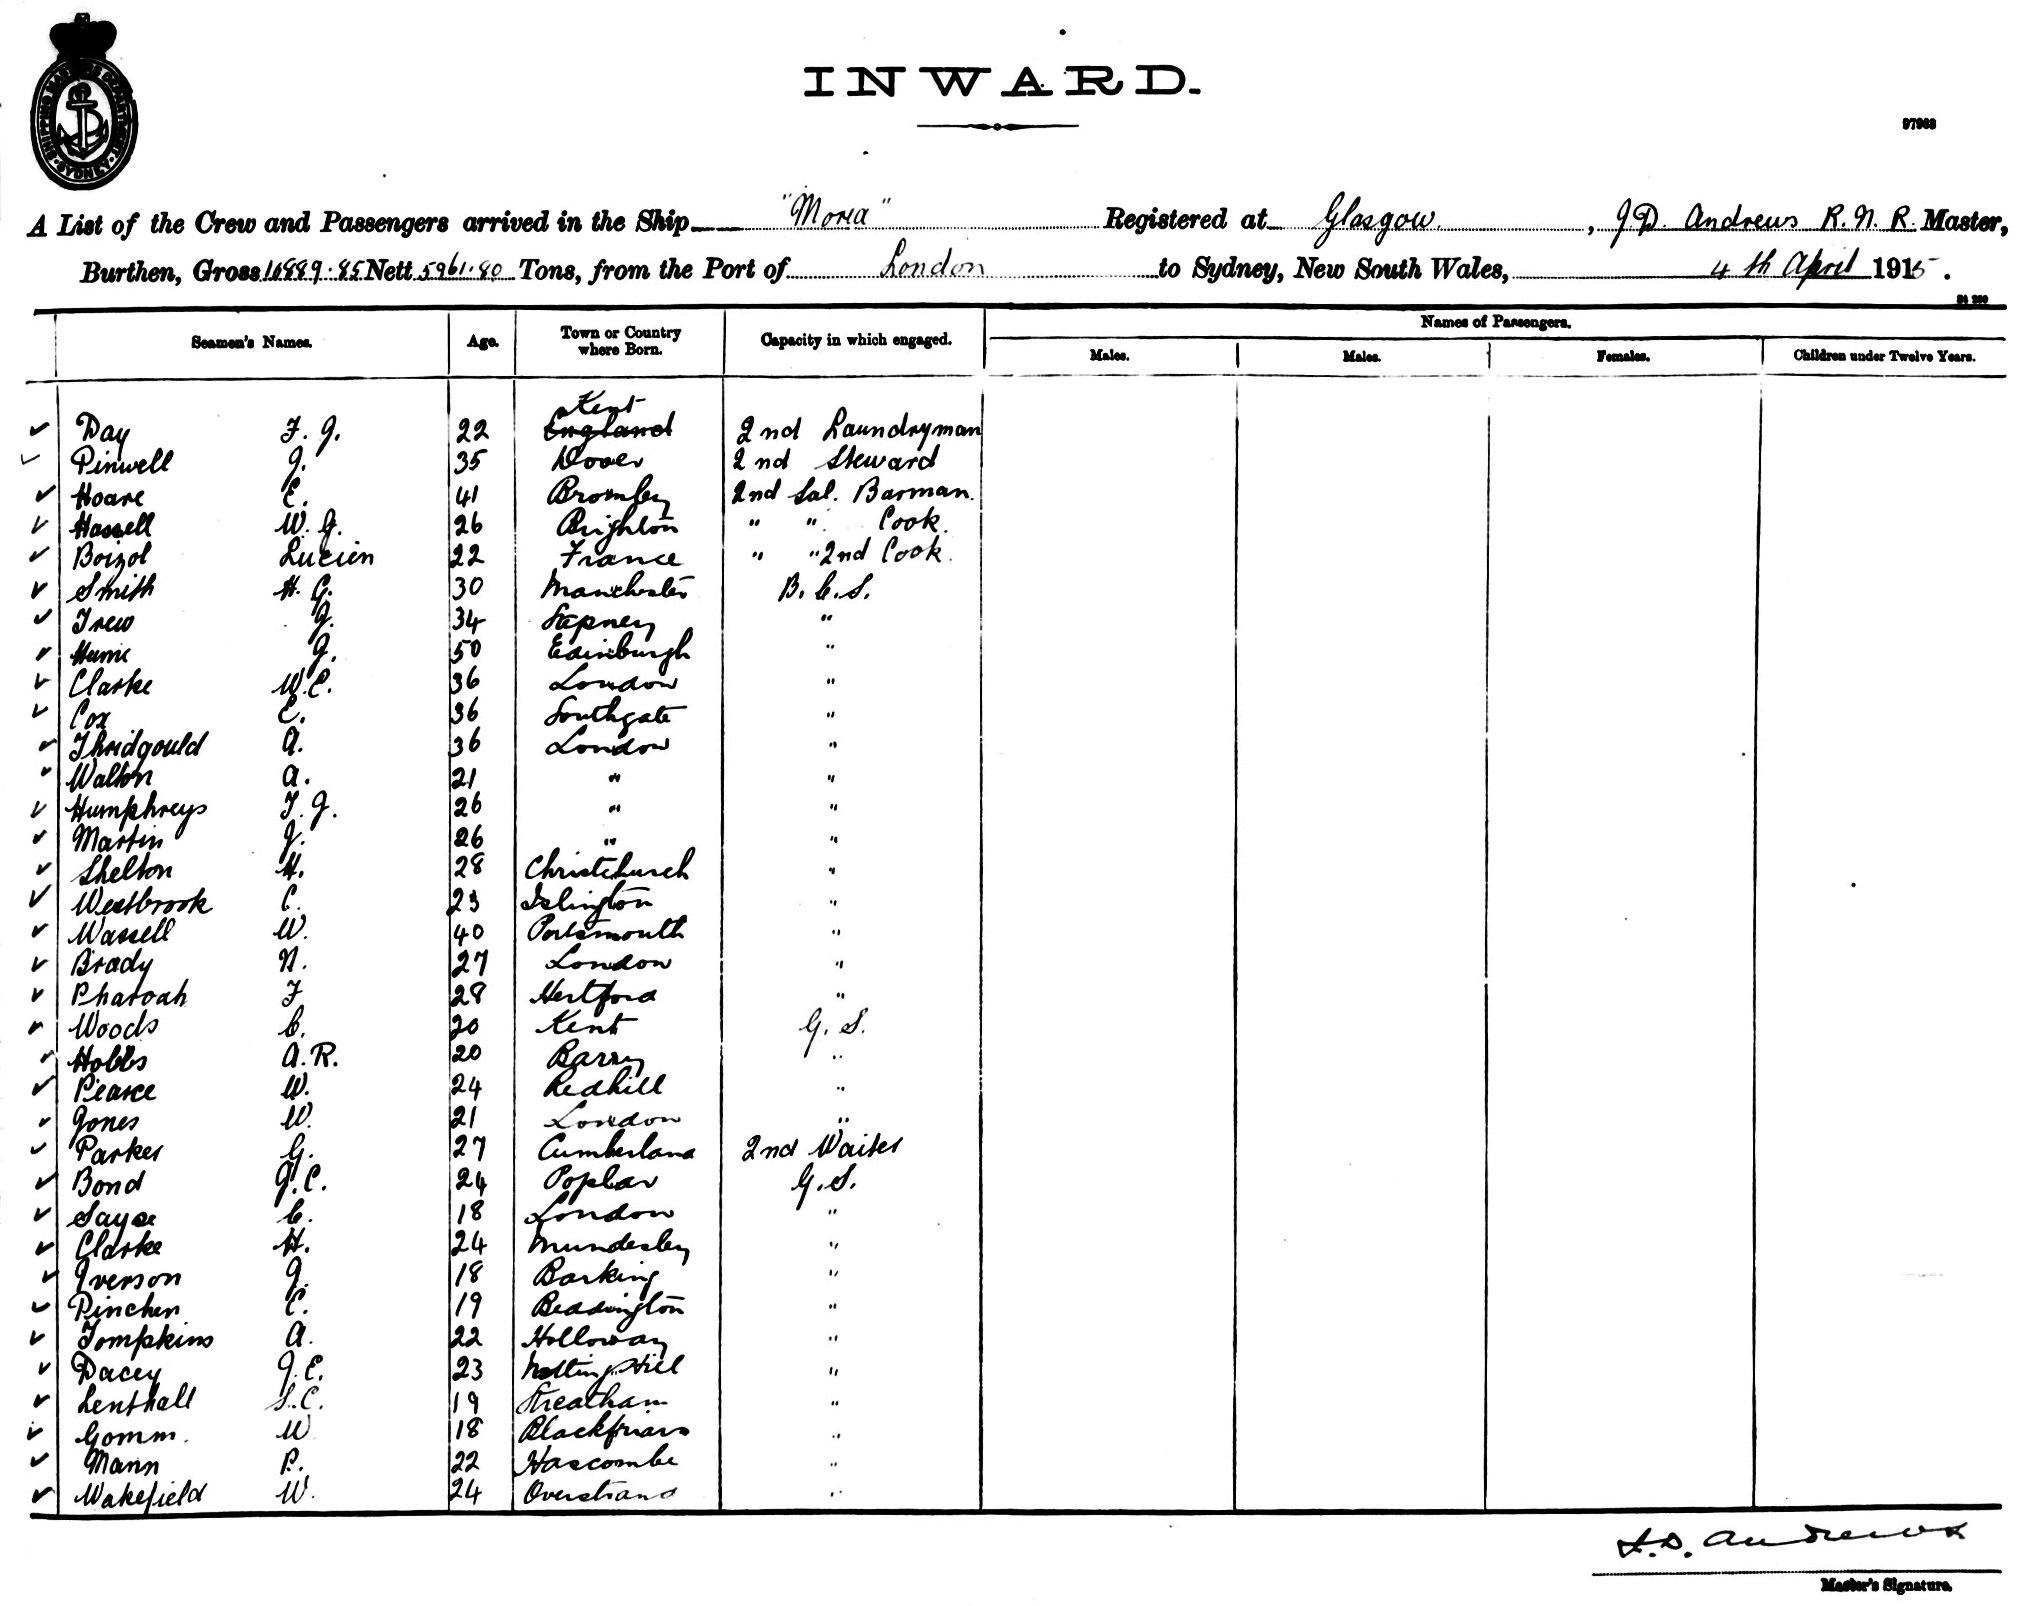 SHIPPING MASTERS DEPARTMENT. SYDNEY
INWARD.
97963
A List of the Crew and Passengers arrived in the Ship "Moria" Registered at Glasgow. , J.D. Andrews R.N.R. Master,
Burthen, Gross 10889.85 Nett 5961.80 Tons, from the Port of London to Sydney, New South Wales, 4th April 1915.
Seamen's Names. Age. Town or Country where Born. Capacity in which engaged. Names of Passengers.
Males. Males. Females. Children under Twelve Years.
Kent
Day F. J. 22 England 2nd Laundryman
Pinwell J. 35 Dover 2nd Steward
Hoare E. 41 Bromley 2nd Sal. Barman.
Hassell W. J. 26 Brighton " " Cook.
Boizol Lucien 22 France " " 2nd Cook.
Smith H. G. 30 Manchester B.C.S.
Trew J. 34 Stepney "
Hume J. 50 Edinburgh "
Clarke W.E. 36 London "
Cox E. 36 Southgate "
Thridgould A. 36 London "
Walton A. 21 " "
Humphreys T. J. 26 " "
Martin J. 26 " "
Shelton H. 28 Christchurch "
Westbrook C. 23 Islington "
Wassell W. 40 Portsmouth "
Brady N. 27 London "
Pharoah F 28 Hertford "
Woods C. 20 Kent G. S.
Hobbs A.R. 20 Barry "
Pearce W. 24 Redhill "
Jones W. 21 London "
Parker G. 27 Cumberland 2nd Waiter
Bond J.C. 24 Poplar G.S.
Sayse C. 18 London "
Clarke H. 24 Mundesley "
Iverson J. 18 Barking "
Pinchen E. 19 Beddington "
Tompkins A. 22 Holloway "
Dacey J.E. 23 Notting Hill "
Lenthall S.C. 19 Streatham "
Gomm. W 18 Blackfriars "
Mann P. 22 Hascombe "
Wakefield W. 24 Overstrand "
J.D. Andrews
Master's Signature.